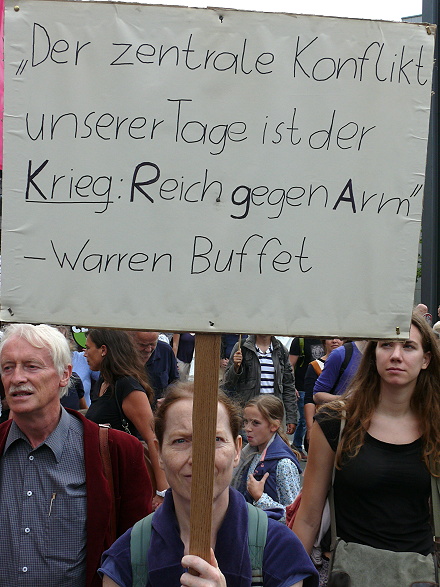 „Der zentrale Konflikt
unserer Tage ist der
Krieg: Reich gegen Arm“
– Warren Buffet